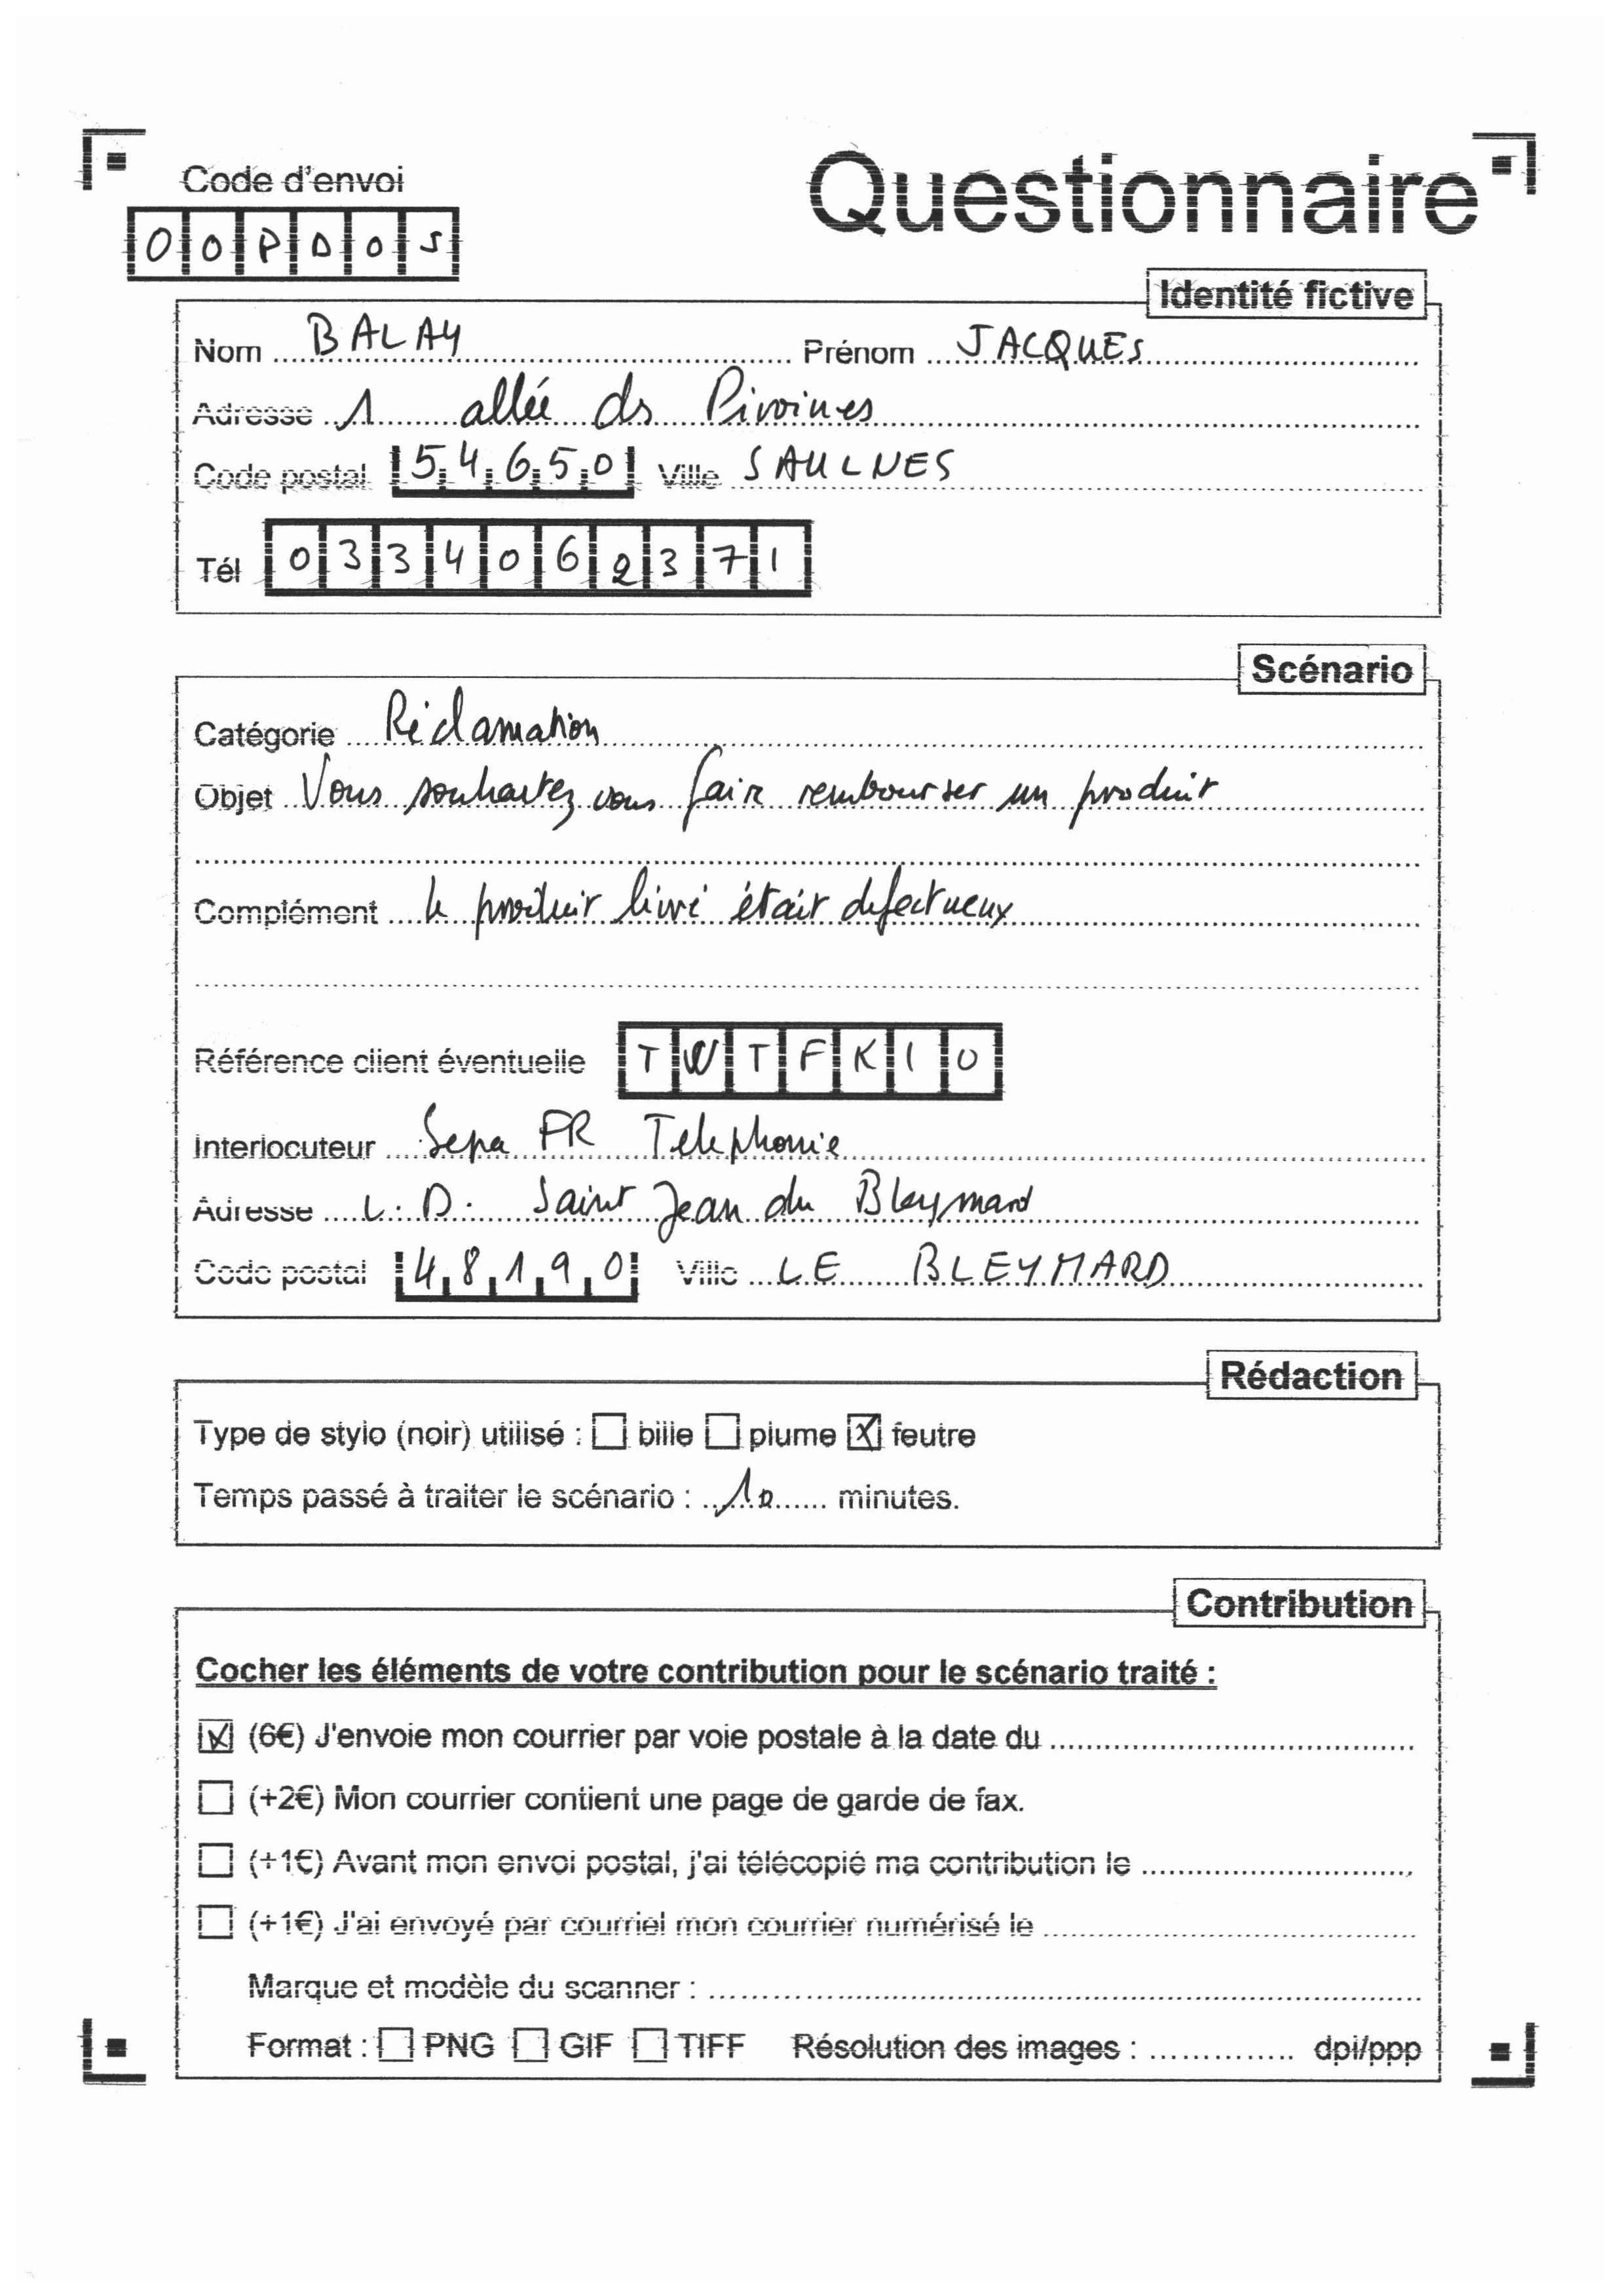 Code d'envoi
Questionnaire
O O P D O S
Identité fictive
Nom BALAY Prénom JACQUES
Adresse 1 allée des Pivoines
Code postal 54650 Ville SAULNES
Tél 0334062371
Scénario
Catégorie Réclamation
Objet Vous souhaitez vous faire rembourser un produit
Complément Le produit livré était defectueux
Référence client éventuelle TWTFK10
Interlocuteur Sepa FR Telephonie
Adresse L.D. Saint Jean du Bleymard
Code postal 48190 Ville LE BLEYMARD
Rédaction
Type de stylo (noir) utilisé : bille plume X feutre
Temps passé à traiter le scénario : 10 minutes.
Contribution
Cocher les éléments de votre contribution pour le scénario traité :
X (6€) J'envoie mon courrier par voie postale à la date du
(+2€) Mon courrier contient une page de garde de fax.
(+1€) Avant mon envoi postal, j'ai télécopié ma contribution le
(+1€) J'ai envoyé par courriel mon courrier numérisé le
Marque et modèle du scanner :
Format : PNG GIF TIFF Résolution des images : dpi/ppp